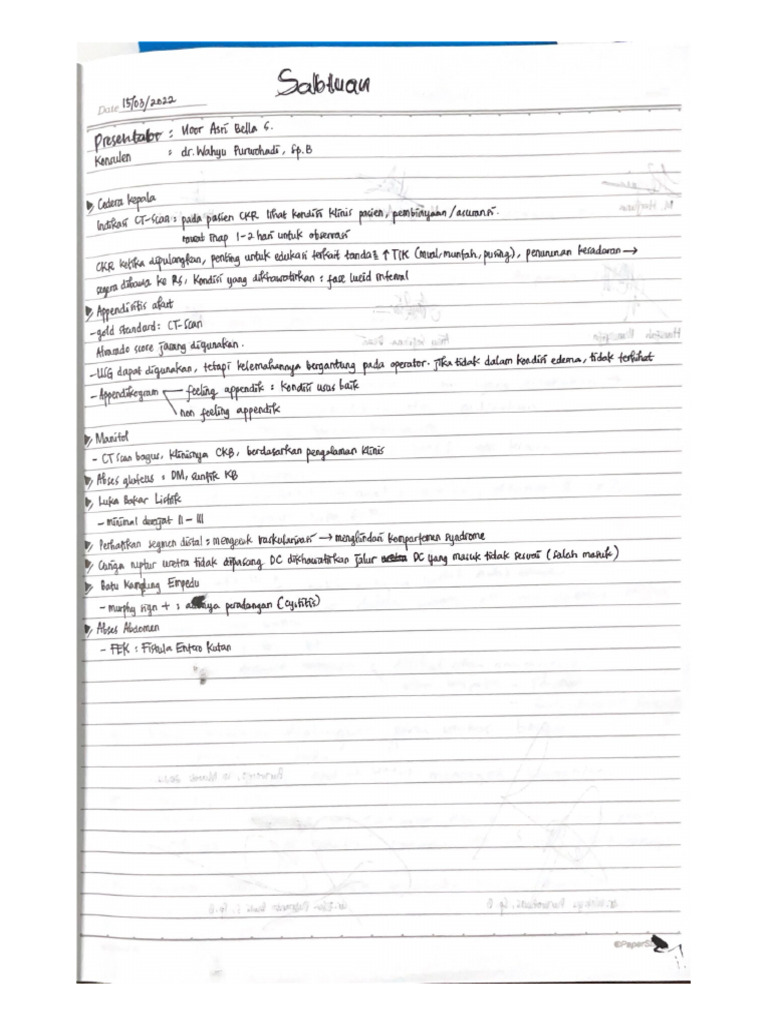 Sabtuan
Date 15/03/2022
Presentator : Noor Asri Bella S.
Konsulen : dr. Wahyu Purwohadi, Sp.B
Cedera kepala
Indikasi CT-Scan : pada pasien CKR lihat kondisi klinis pasien, pembiayaan/asuransi.
rawat inap 1-2 hari untuk observasi
CKR ketika dipulangkan, penting untuk edukasi terkait tanda² ↑ TIK (mual, muntah, pusing), penurunan kesadaran →
segera dibawa ke RS, kondisi yang dikhawatirkan : fase lucid interval
Appendisitis akut
- gold standard : CT-Scan
Alvarado score jarang digunakan.
- USG dapat digunakan, tetapi kelemahannya bergantung pada operator. jika tidak dalam kondisi edema, tidak terlihat
- Appendikogram feeling appendik : kondisi usus baik
non feeling appendik
Manitol
- CT Scan bagus, klinisnya CKB, berdasarkan pengalaman klinis
Abses gluteus : DM, suntik KB
Luka Bakar Listrik
- minimal derajat II - III
Perhatikan segmen distal : mengecek vaskularisasi → menghindari kompartemen syndrome
Curiga ruptur uretra tidak dipasang DC dikhawatirkan jalur DC yang masuk tidak sesuai (salah masuk)
Batu Kandung Empedu
- murphy sign + : adanya peradangan (cystitis)
Abses Abdomen
- FEK : Fistula Entero Kutan